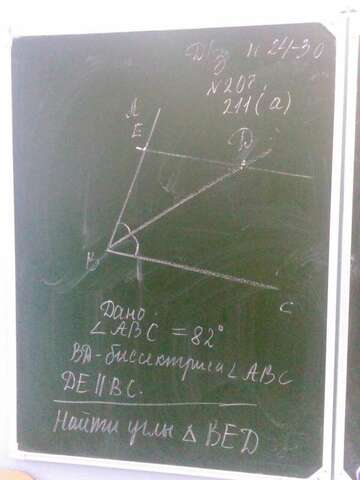 Д/з п 24-30
№ 207,
211(а)
А
Е
D
В
С
Дано:
∠ABC = 82°
BD - биссектриса ∠ABC
DE || BC.
Найти углы △ BED